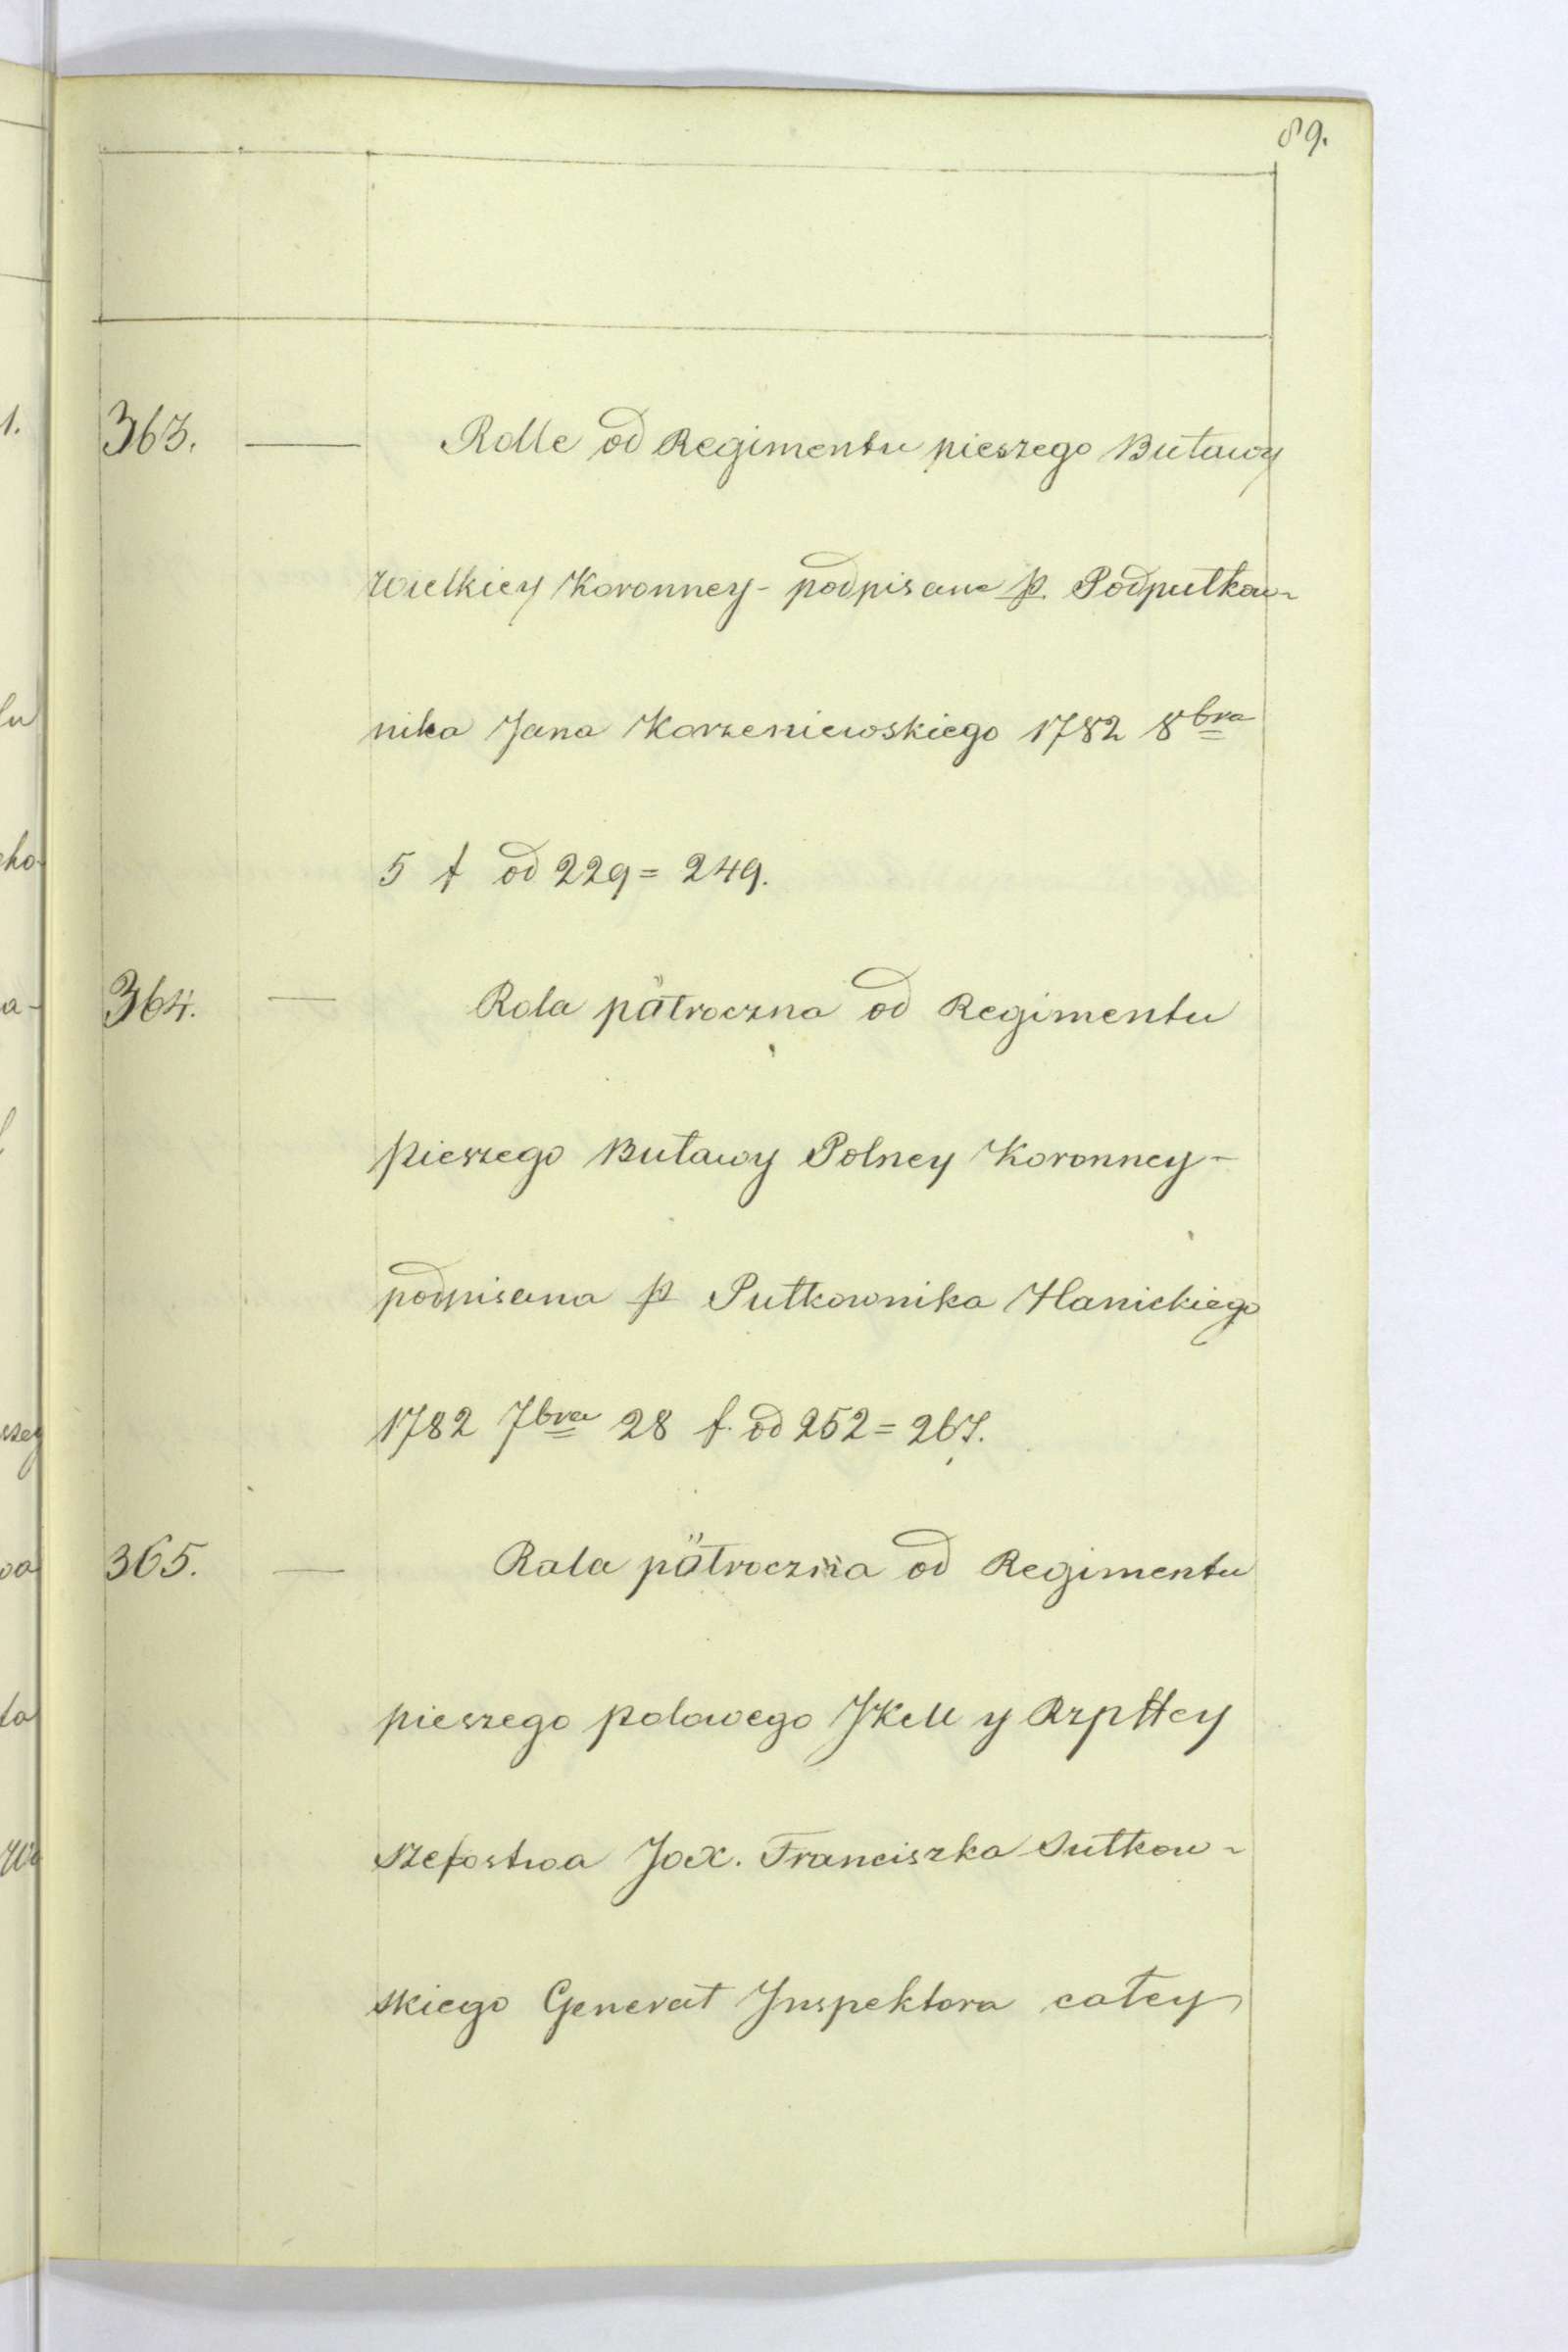 89.
363. — Rolle od Regimentu pieszego Buławy
Wielkiey Koronney - podpisane p. Podpułkow-
nika Jana Korzeniewskiego 1782 8bra
5 f od 229 = 249.
364. — Rola pätroczna od Regimentu
pieszego Buławy Polney Koronney -
podpisana p Pułkownika Hanickiego
1782 7bra 28 f. od 252 = 267.
365. — Rola pätroczna od Regimentu
pieszego polowego JKM y Rzpttey
szefostwa Jox. Franciszka Sułkow-
skiego Generał Inspektora całey